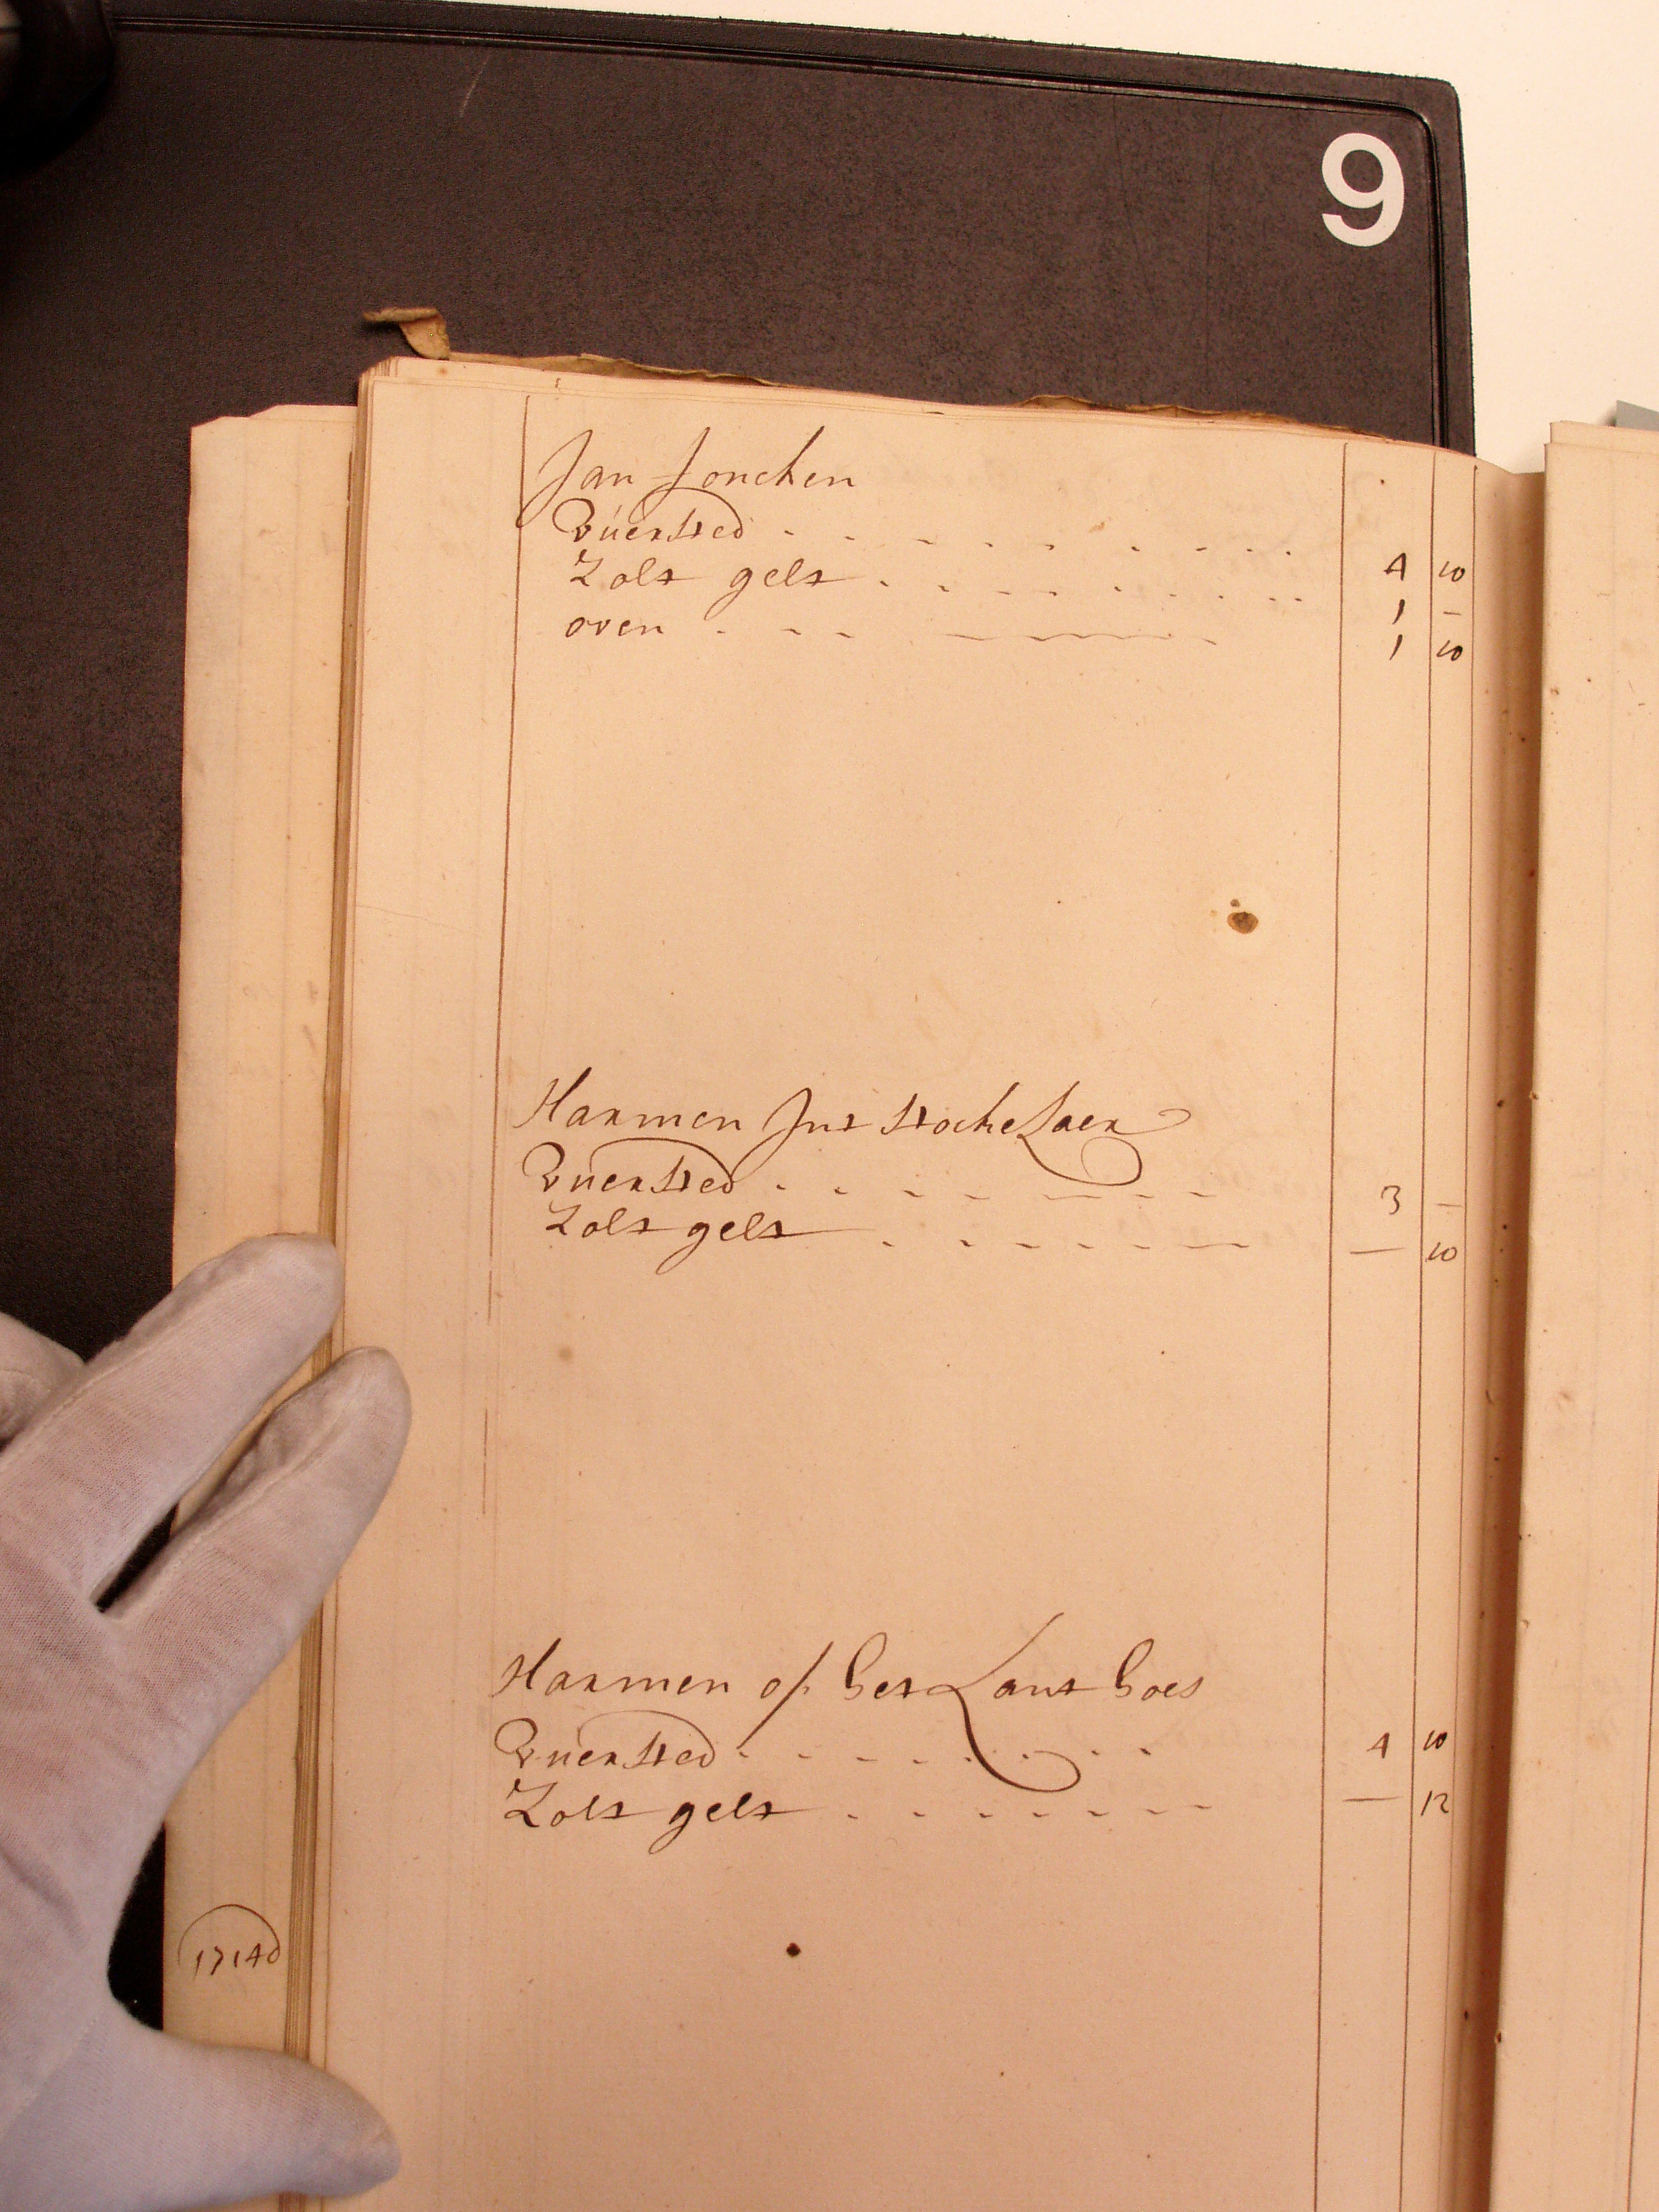 9
Jan Jonchen
Vüersted
Zolt gelt 4 10
oven 1 –
1 10
Harmen Jnt stockeLaer
Vuersted 3 –
Zolt gelt — 10
Harmen op het Lant hoes
Vuersted 4 10
Zolt gelt — 12